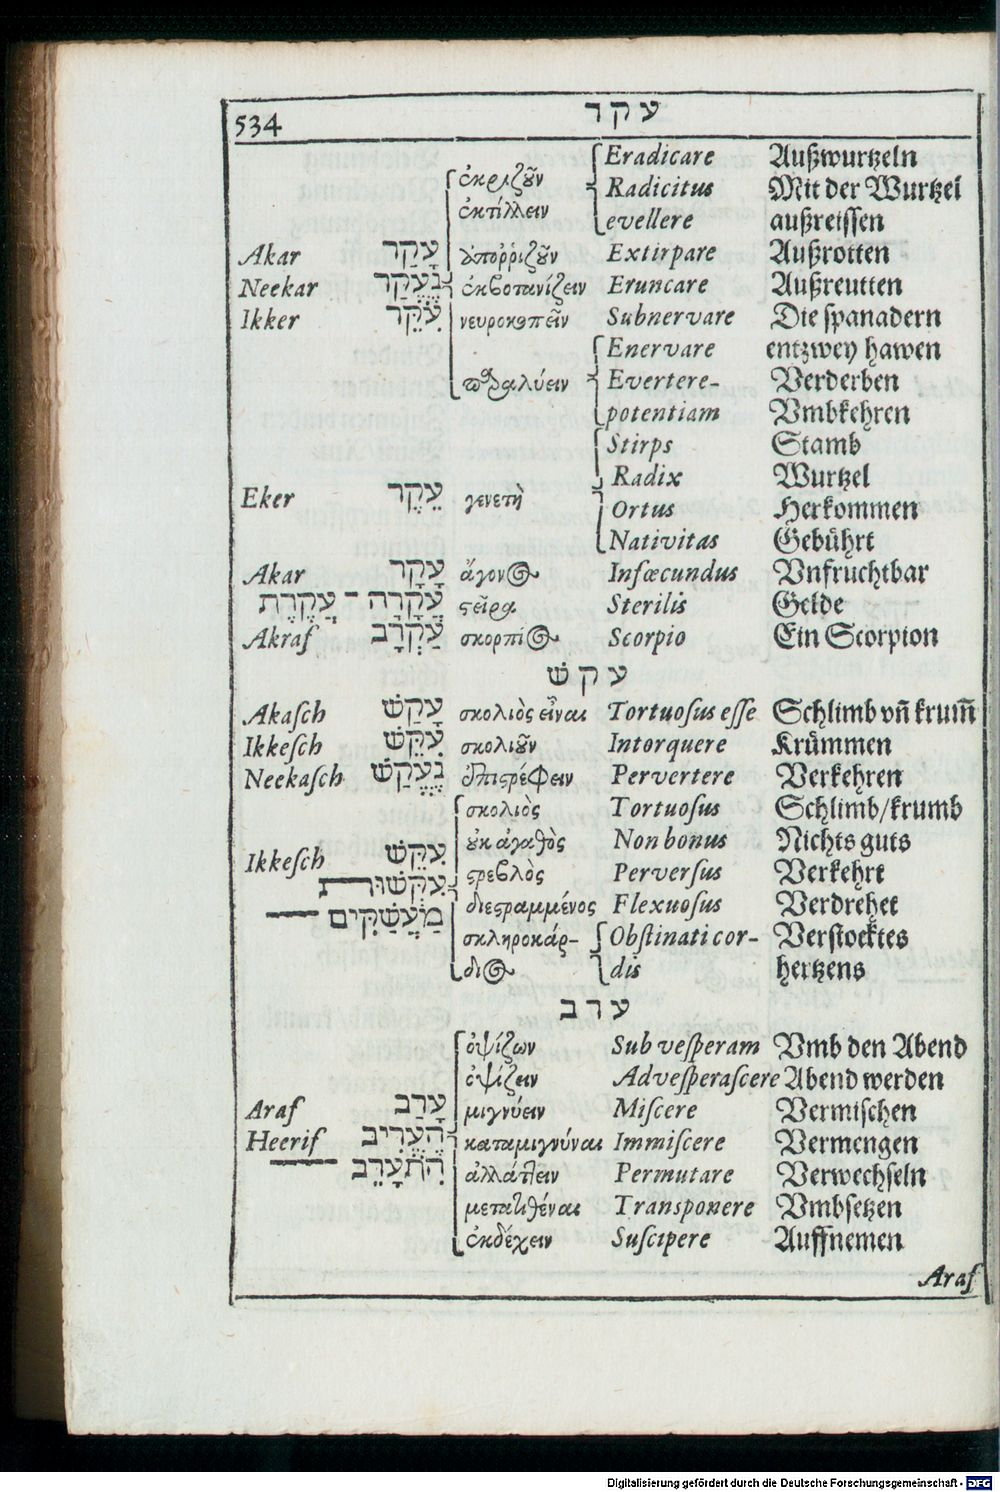 534 עקר
ἐκριζοῦν Eradicare Außwurtzeln
Radicitus Mit der Wurtzel
ἐκτίλλειν evellere außreissen
Akar עָקַר ὑποῤῥιζοῦν Extirpare Außrotten
Neekar נֶעֱקַר ἐκβοτανίζειν Eruncare Außreutten
Ikker עִקֵּר νευροκοπεῖν Subnervare Die spanadern
Enervare entzwey hawen
παραλύειν Evertere- Verderben
potentiam Vmbkehren
Stirps Stamb
Radix Wurtzel
Eker עֵקֶר γενετὴ Ortus Herkommen
Nativitas Gebührt
Akar עָקָר ἄγονος Infœcundus Vnfruchtbar
עֲקָרָה – עֲקֶרֶת ςεῖρα Sterilis Gelde
Akraf עַקְרָב σκορπίος Scorpio Ein Scorpion
עקשׁ
Akaſch עָקַשׁ σκολιὸς εἶναι Tortuoſus eſſe Schlimb vn̄ krum̄
Ikkeſch עִקֵּשׁ σκολιοῦν Intorquere Krümmen
Neekaſch נֶעֱקַשׁ ἐπιςρέφειν Pervertere Verkehren
σκολιὸς Tortuoſus Schlimb/krumb
οὐκ ἀγαθὸς Non bonus Nichts guts
Ikkeſch עִקֵּשׁ ςρεβλὸς Perverſus Verkehrt
עִקְּשׁוּת διεςραμμένος Flexuoſus Verdrehet
מַעֲשַׁקִּים σκληροκάρ- Obſtinati cor- Verstocktes
διος dis hertzens
ערב
ὀψίζων Sub veſperam Vmb den Abend
ὀψίζειν Adveſperaſcere Abend werden
Araf עָרַב μιγνύειν Miſcere Vermischen
Heerif הֶעֱרִיב καταμιγνύναι Immiſcere Vermengen
הִתְעָרֵב ἀλλάττειν Permutare Verwechseln
μετατιθέναι Transponere Vmbsetzen
ἐκδέχειν Suſcipere Auffnemen
Araf
Digitalisierung gefördert durch die Deutsche Forschungsgemeinschaft - DFG